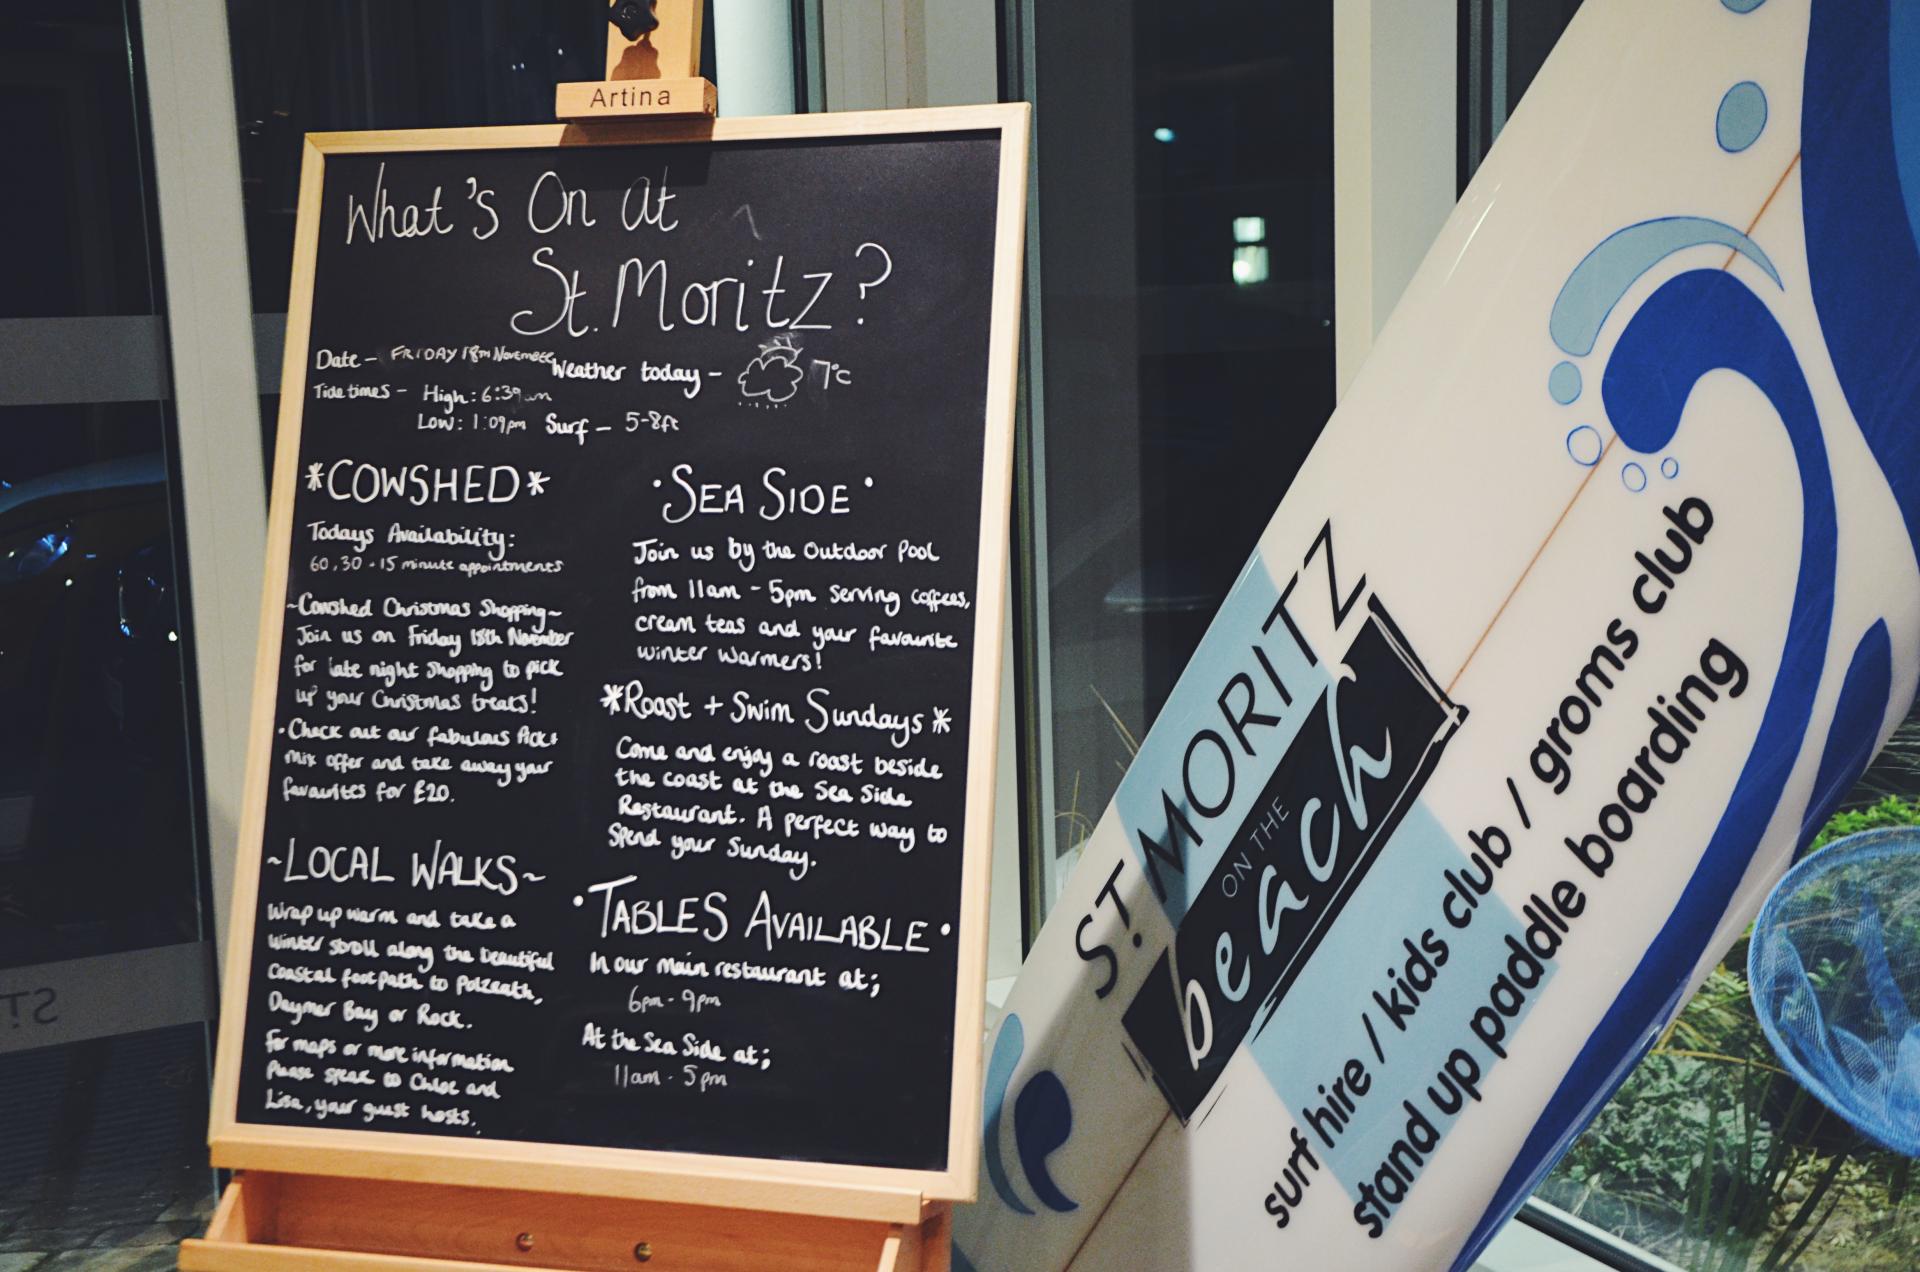 Artina
What's On at
St. Moritz?
Date - FRIDAY 18TH NOVEMBER
Weather today - 7°c
Tide times - High: 6:39am
Low: 1:09pm Surf - 5-8ft
*COWSHED*
Todays Availability:
60, 30 + 15 minute appointments
~Cowshed Christmas Shopping~
Join us on Friday 18th November
for late night Shopping to pick
up your Christmas treats!
• Check out our fabulous Pick +
Mix offer and take away your
favourites for £20.
~LOCAL WALKS~
Wrap up warm and take a
Winter stroll along the beautiful
Coastal footpath to Polzeath,
Daymer Bay or Rock.
For maps or more information
Please speak to Chloe and
Lisa, your guest hosts.
•SEA SIDE•
Join us by the Outdoor Pool
from 11am - 5pm serving coffees,
cream teas and your favourite
winter warmers!
*Roast + Swim Sundays*
Come and enjoy a roast beside
the coast at the Sea Side
Restaurant. A perfect way to
Spend your Sunday.
•TABLES AVAILABLE•
In our main restaurant at;
6pm - 9pm
At the Sea Side at;
11am - 5pm
ST. MORITZ
ON THE
beach
surf hire / kids club / groms club
stand up paddle boarding
ST.